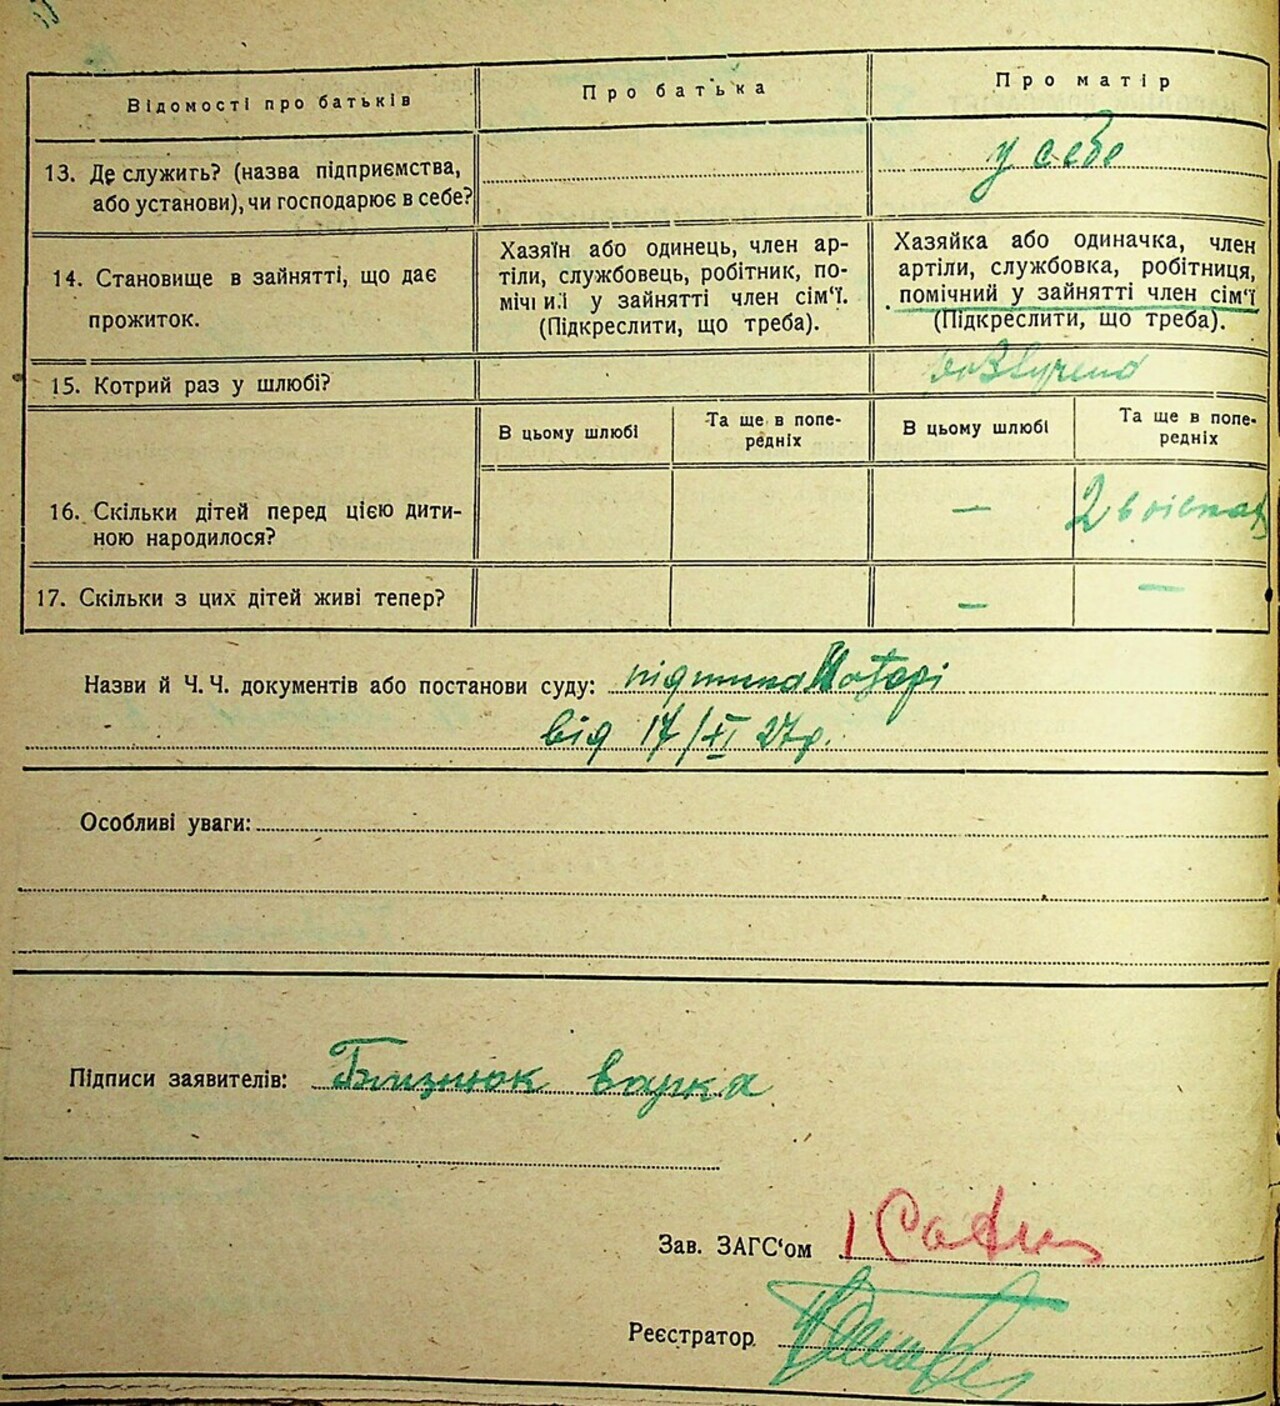 Відомості про батьків
Про батька
Про матір
13. Де служить? (назва підприємства,
або установи), чи господарює в себе?
у себе
14. Становище в зайнятті, що дає
прожиток.
Хазяїн або одинець, член ар-
тіли, службовець, робітник, по-
мічний у зайнятті член сім'ї.
(Підкреслити, що треба).
Хазяйка або одиначка, член
артіли, службовка, робітниця,
помічний у зайнятті член сім'ї
(Підкреслити, що треба).
15. Котрий раз у шлюбі?
В цьому шлюбі
Та ще в попе-
редніх
В цьому шлюбі
Та ще в попе-
редніх
16. Скільки дітей перед цією дити-
ною народилося?
—
2
17. Скільки з цих дітей живі тепер?
—
—
Назви й Ч. Ч. документів або постанови суду:
від 17/XI 27р.
Особливі уваги:
Підписи заявителів: Близнюк
Зав. ЗАГС'ом
Реєстратор